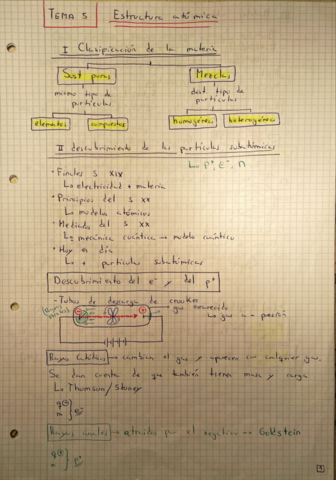 TEMA 5 Estructura atómica
I Clasificación de la materia
Sust puras Mezclas
mismo tipo de partículas
dist tipo de partículas
elementos compuestos homogénea heterogénea
II descubrimiento de las partículas subatómicas
↳ p+, e-, n
· Finales S XIX
↳ electricidad + materia
· Principios del S XX
↳ modelos atómicos
· Mediados del S XX
↳ mecánica cuántica → modelo cuántico
· Hoy en día
↳ + partículas subatómicas
Descubrimiento del e- y del p+
- Tubos de descarga de crookes
gas enrarecido
↳ gas a - presión
Rayos Catódicos → cambian el gas y aparecen con cualquier gas.
Se dan cuenta de que también tienen masa y carga
↳ Thomson/Stoney
q⊖
m } e-
Rayos canales → atraídos por el negativo → Goldstein
q⊕
m } p+